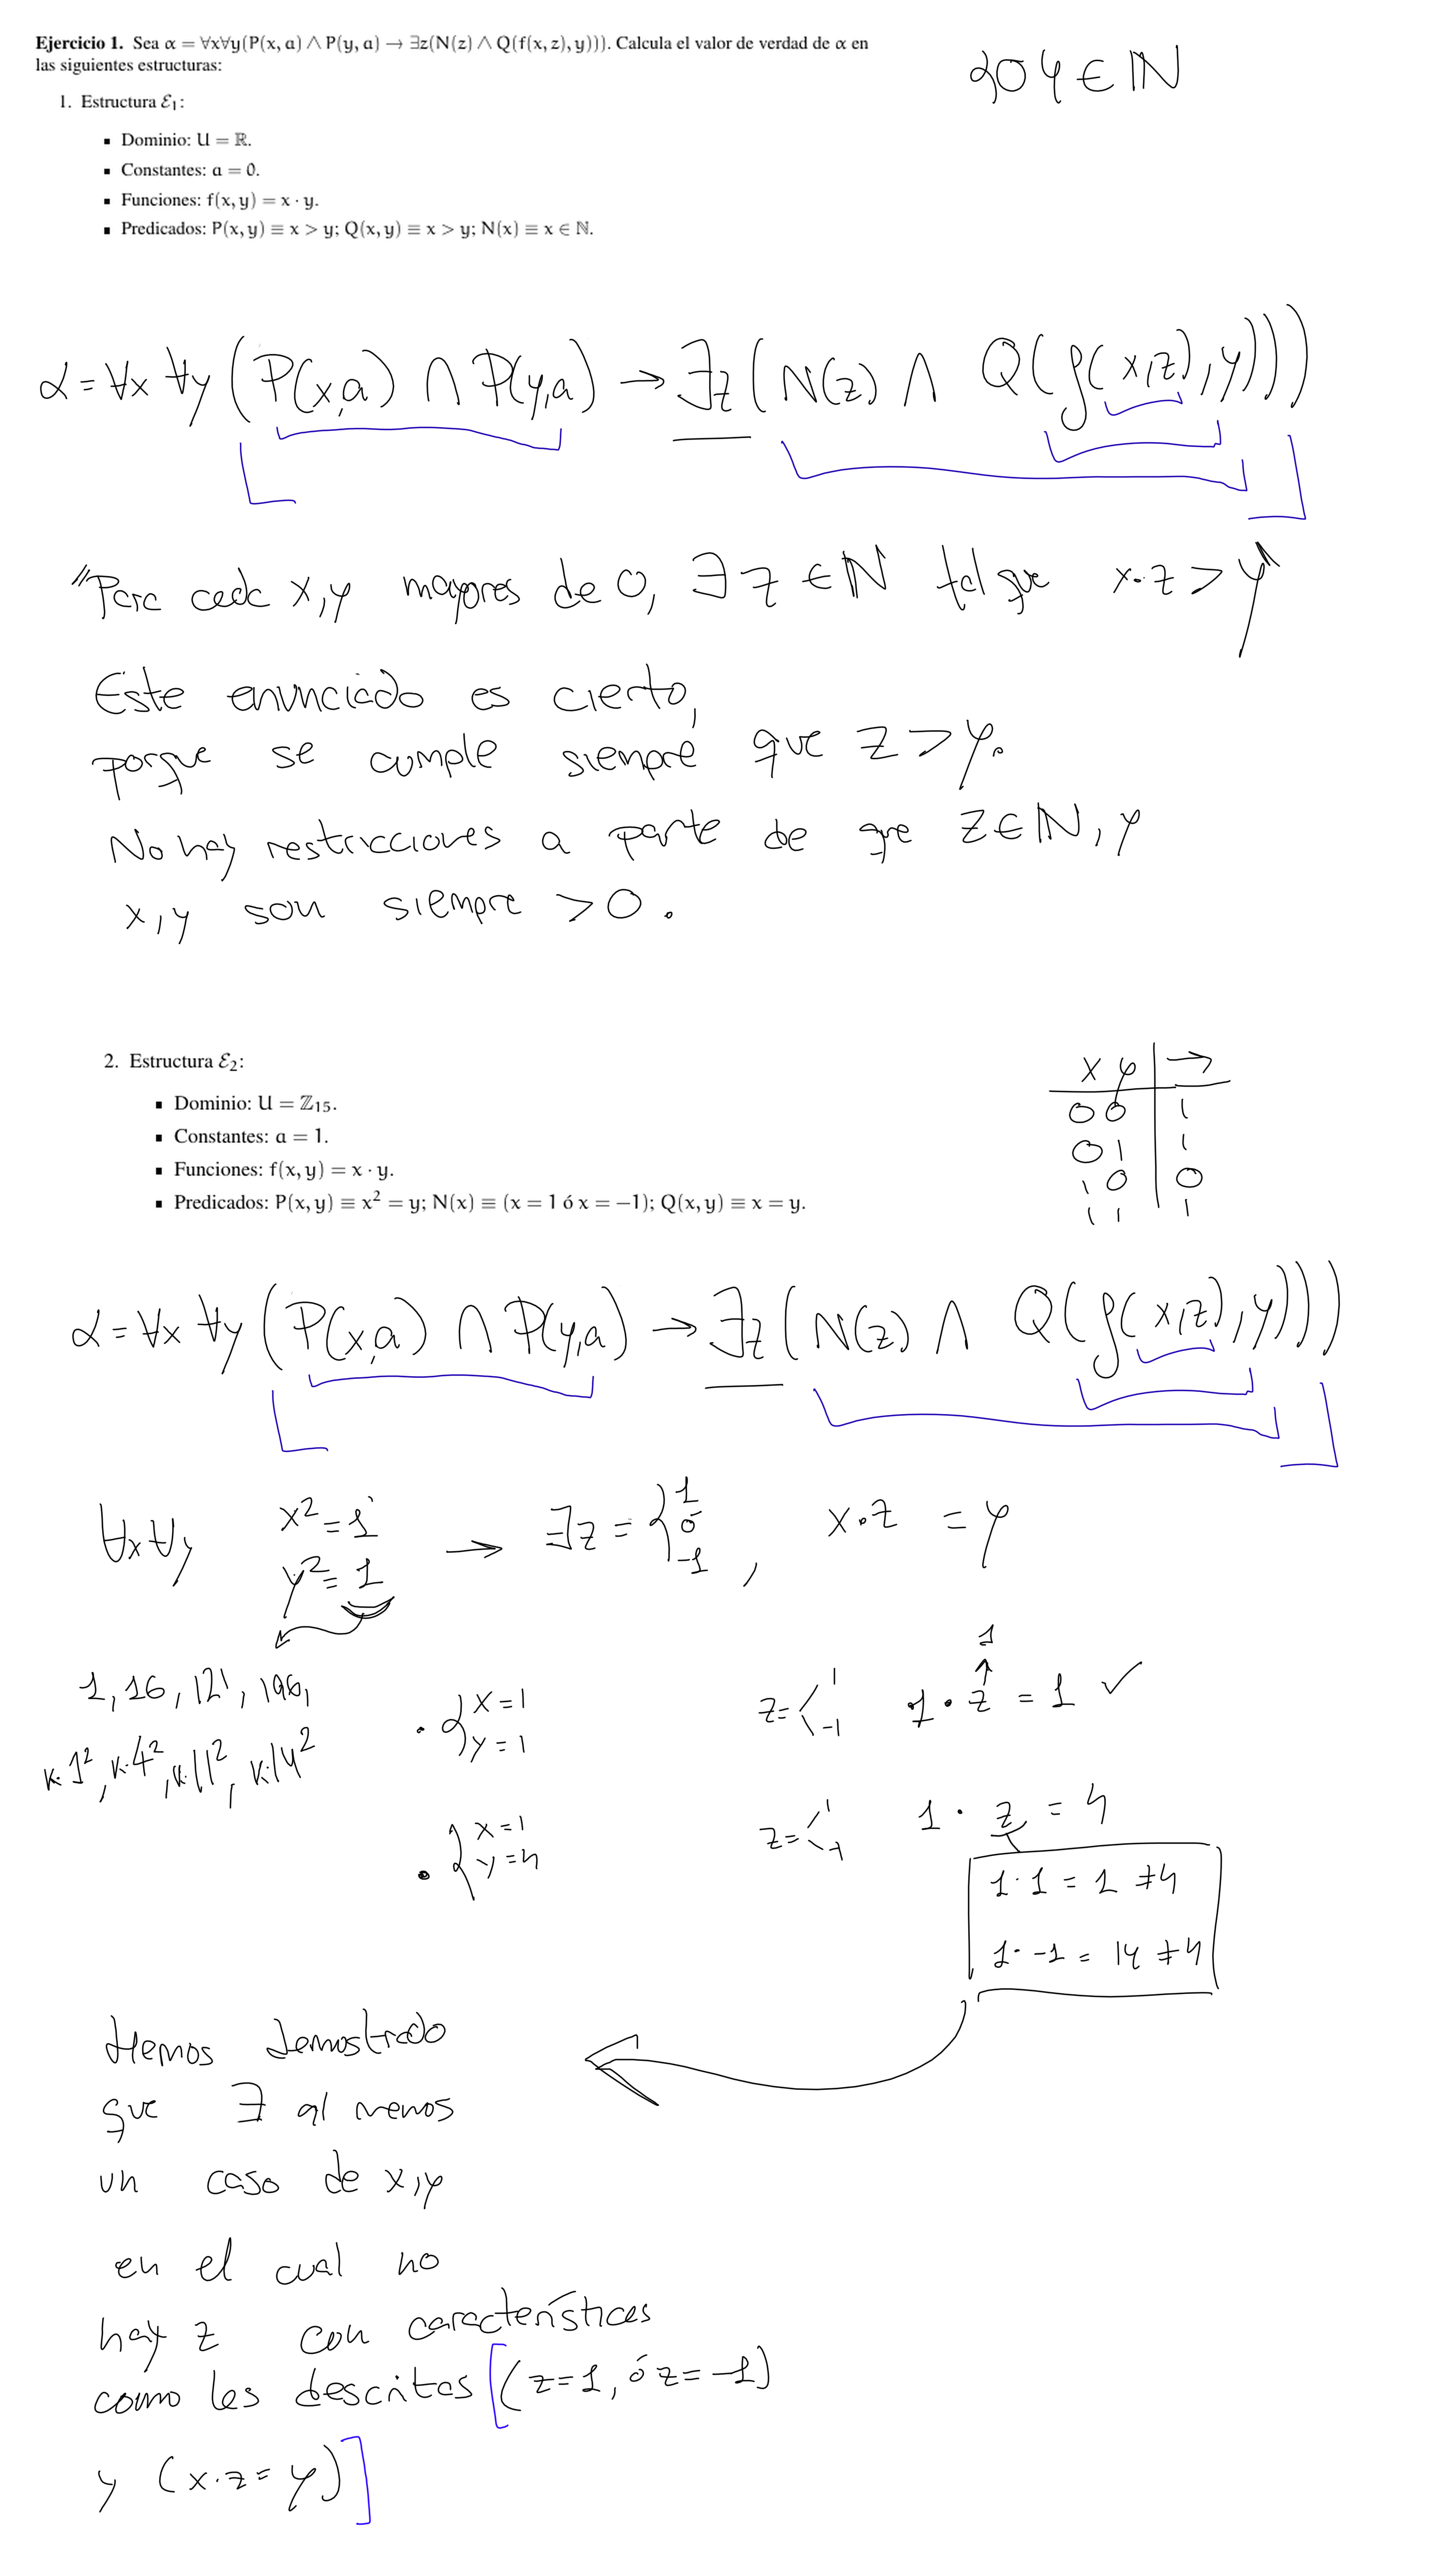 Ejercicio 1. Sea α = ∀x∀y(P(x, a) ∧ P(y, a) → ∃z(N(z) ∧ Q(f(x, z), y))). Calcula el valor de verdad de α en
las siguientes estructuras:
204 ∈ ℕ
1. Estructura ℰ₁:
▪ Dominio: U = ℝ.
▪ Constantes: a = 0.
▪ Funciones: f(x, y) = x · y.
▪ Predicados: P(x, y) ≡ x > y; Q(x, y) ≡ x > y; N(x) ≡ x ∈ ℕ.
α = ∀x ∀y (P(x,a) ∩ P(y,a) → ∃z (N(z) ∧ Q(f(x,z),y)))
"Para cada x,y mayores de 0, ∃ z ∈ ℕ tal que x·z > y"
Este enunciado es cierto,
porque se cumple siempre que z > y.
No hay restricciones a parte de que z ∈ ℕ, y
x,y son siempre > 0.
2. Estructura ℰ₂:
▪ Dominio: U = ℤ₁₅.
▪ Constantes: a = 1.
▪ Funciones: f(x, y) = x · y.
▪ Predicados: P(x, y) ≡ x² = y; N(x) ≡ (x = 1 ó x = −1); Q(x, y) ≡ x = y.
x y →
0 0 1
0 1 1
1 0 0
1 1 1
α = ∀x ∀y (P(x,a) ∩ P(y,a) → ∃z (N(z) ∧ Q(f(x,z),y)))
∀x∀y x² = 1 y² = 1 → ∃z = { 1 ó -1 , x·z = y
1, 16, 121, 196,
k·1², k·4², k·11², k·14²
· { x = 1 y = 1 z = < 1 -1 1 · z = 1 ✓
1
· { x = 1 y = 4 z = < 1 -1 1 · z = 4
1·1 = 1 ≠ 4
1·-1 = 14 ≠ 4
Hemos demostrado
que ∃ al menos
un caso de x,y
en el cual no
hay z con características
como las descritas [(z=1, ó z=-1)
y (x·z = y)]